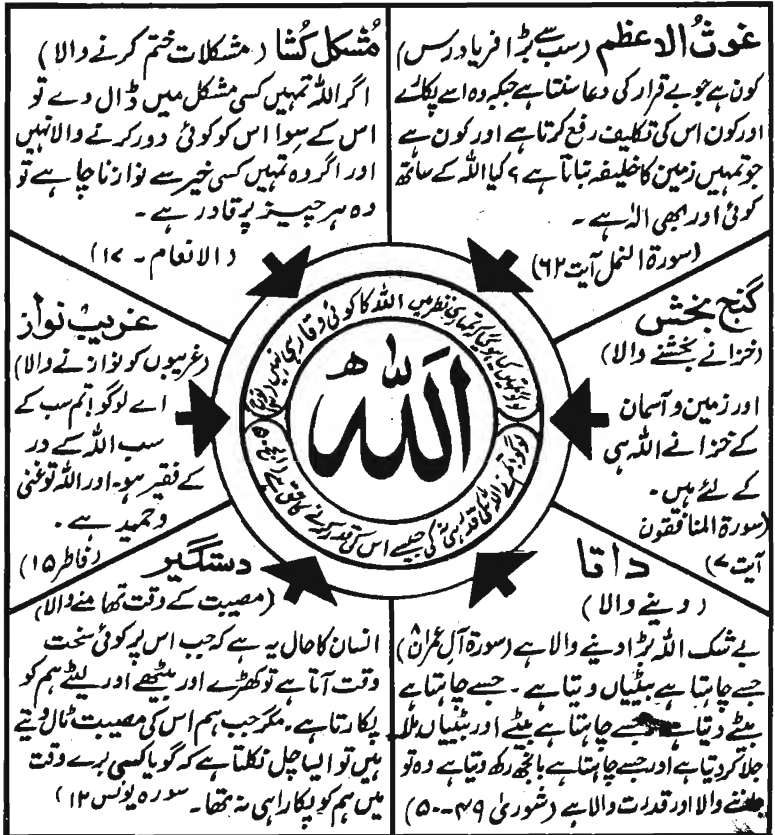 غوثُ الاعظم (سب سے بڑا فریاد رس)
کون ہے جو بے قرار کی دعا سنتا ہے جبکہ وہ اسے پکارے
اور کون اس کی تکلیف رفع کرتا ہے اور کون ہے
جو تمہیں زمین کا خلیفہ بناتا ہے؟ کیا اللہ کے ساتھ
کوئی اور بھی الٰہ ہے۔
(سورۃ النمل آیت ۶۲)
مُشکل کُشا (مشکلات ختم کرنے والا)
اگر اللہ تمہیں کسی مشکل میں ڈال دے تو
اس کے سوا اس کو کوئی دور کرنے والا نہیں
اور اگر وہ تمہیں کسی خیر سے نوازنا چاہے تو
وہ ہر چیز پر قادر ہے۔
(الانعام - ۱۷)
گنج بخش
(خزانے بخشنے والا)
اور زمین و آسمان
کے خزانے اللہ ہی
کے لئے ہیں۔
(سورۃ المنافقون
آیت ۷)
غریب نواز
(غریبوں کو نوازنے والا)
اے لوگو! تم سب کے
سب اللہ کے در
کے فقیر ہو۔ اور اللہ تو غنی
و حمید ہے۔
(فاطر ۱۵)
لوگو تمہیں کیا ہوگیا کہ تمہاری نظر میں اللہ کا کوئی وقار ہی نہیں (نوح)
لوگو! تم نے اللہ کی قدر ہی نہ کی جیسے اس کی قدر کرنے کا حق ہے (الحج)
اللہ
داتا
(دینے والا)
بے شک اللہ بڑا دینے والا ہے (سورۃ آل عمران ۸)
جسے چاہتا ہے بیٹیاں دیتا ہے۔ جسے چاہتا ہے
بیٹے دیتا ہے جسے چاہتا ہے بیٹے اور بیٹیاں ملا
جلا کر دیتا ہے اور جسے چاہتا ہے بانجھ رکھ دیتا ہے وہ تو
جاننے والا اور قدرت والا ہے (شوریٰ ۴۹-۵۰)
دستگیر
(مصیبت کے وقت تھامنے والا)
انسان کا حال یہ ہے کہ جب اس پر کوئی سخت
وقت آتا ہے تو کھڑے اور بیٹھے اور لیٹے ہم کو
پکارتا ہے۔ مگر جب ہم اس کی مصیبت ٹال دیتے
ہیں تو ایسا چل نکلتا ہے کہ گویا کسی برے وقت
میں ہم کو پکارا ہی نہ تھا۔ سورہ یونس ۱۲)